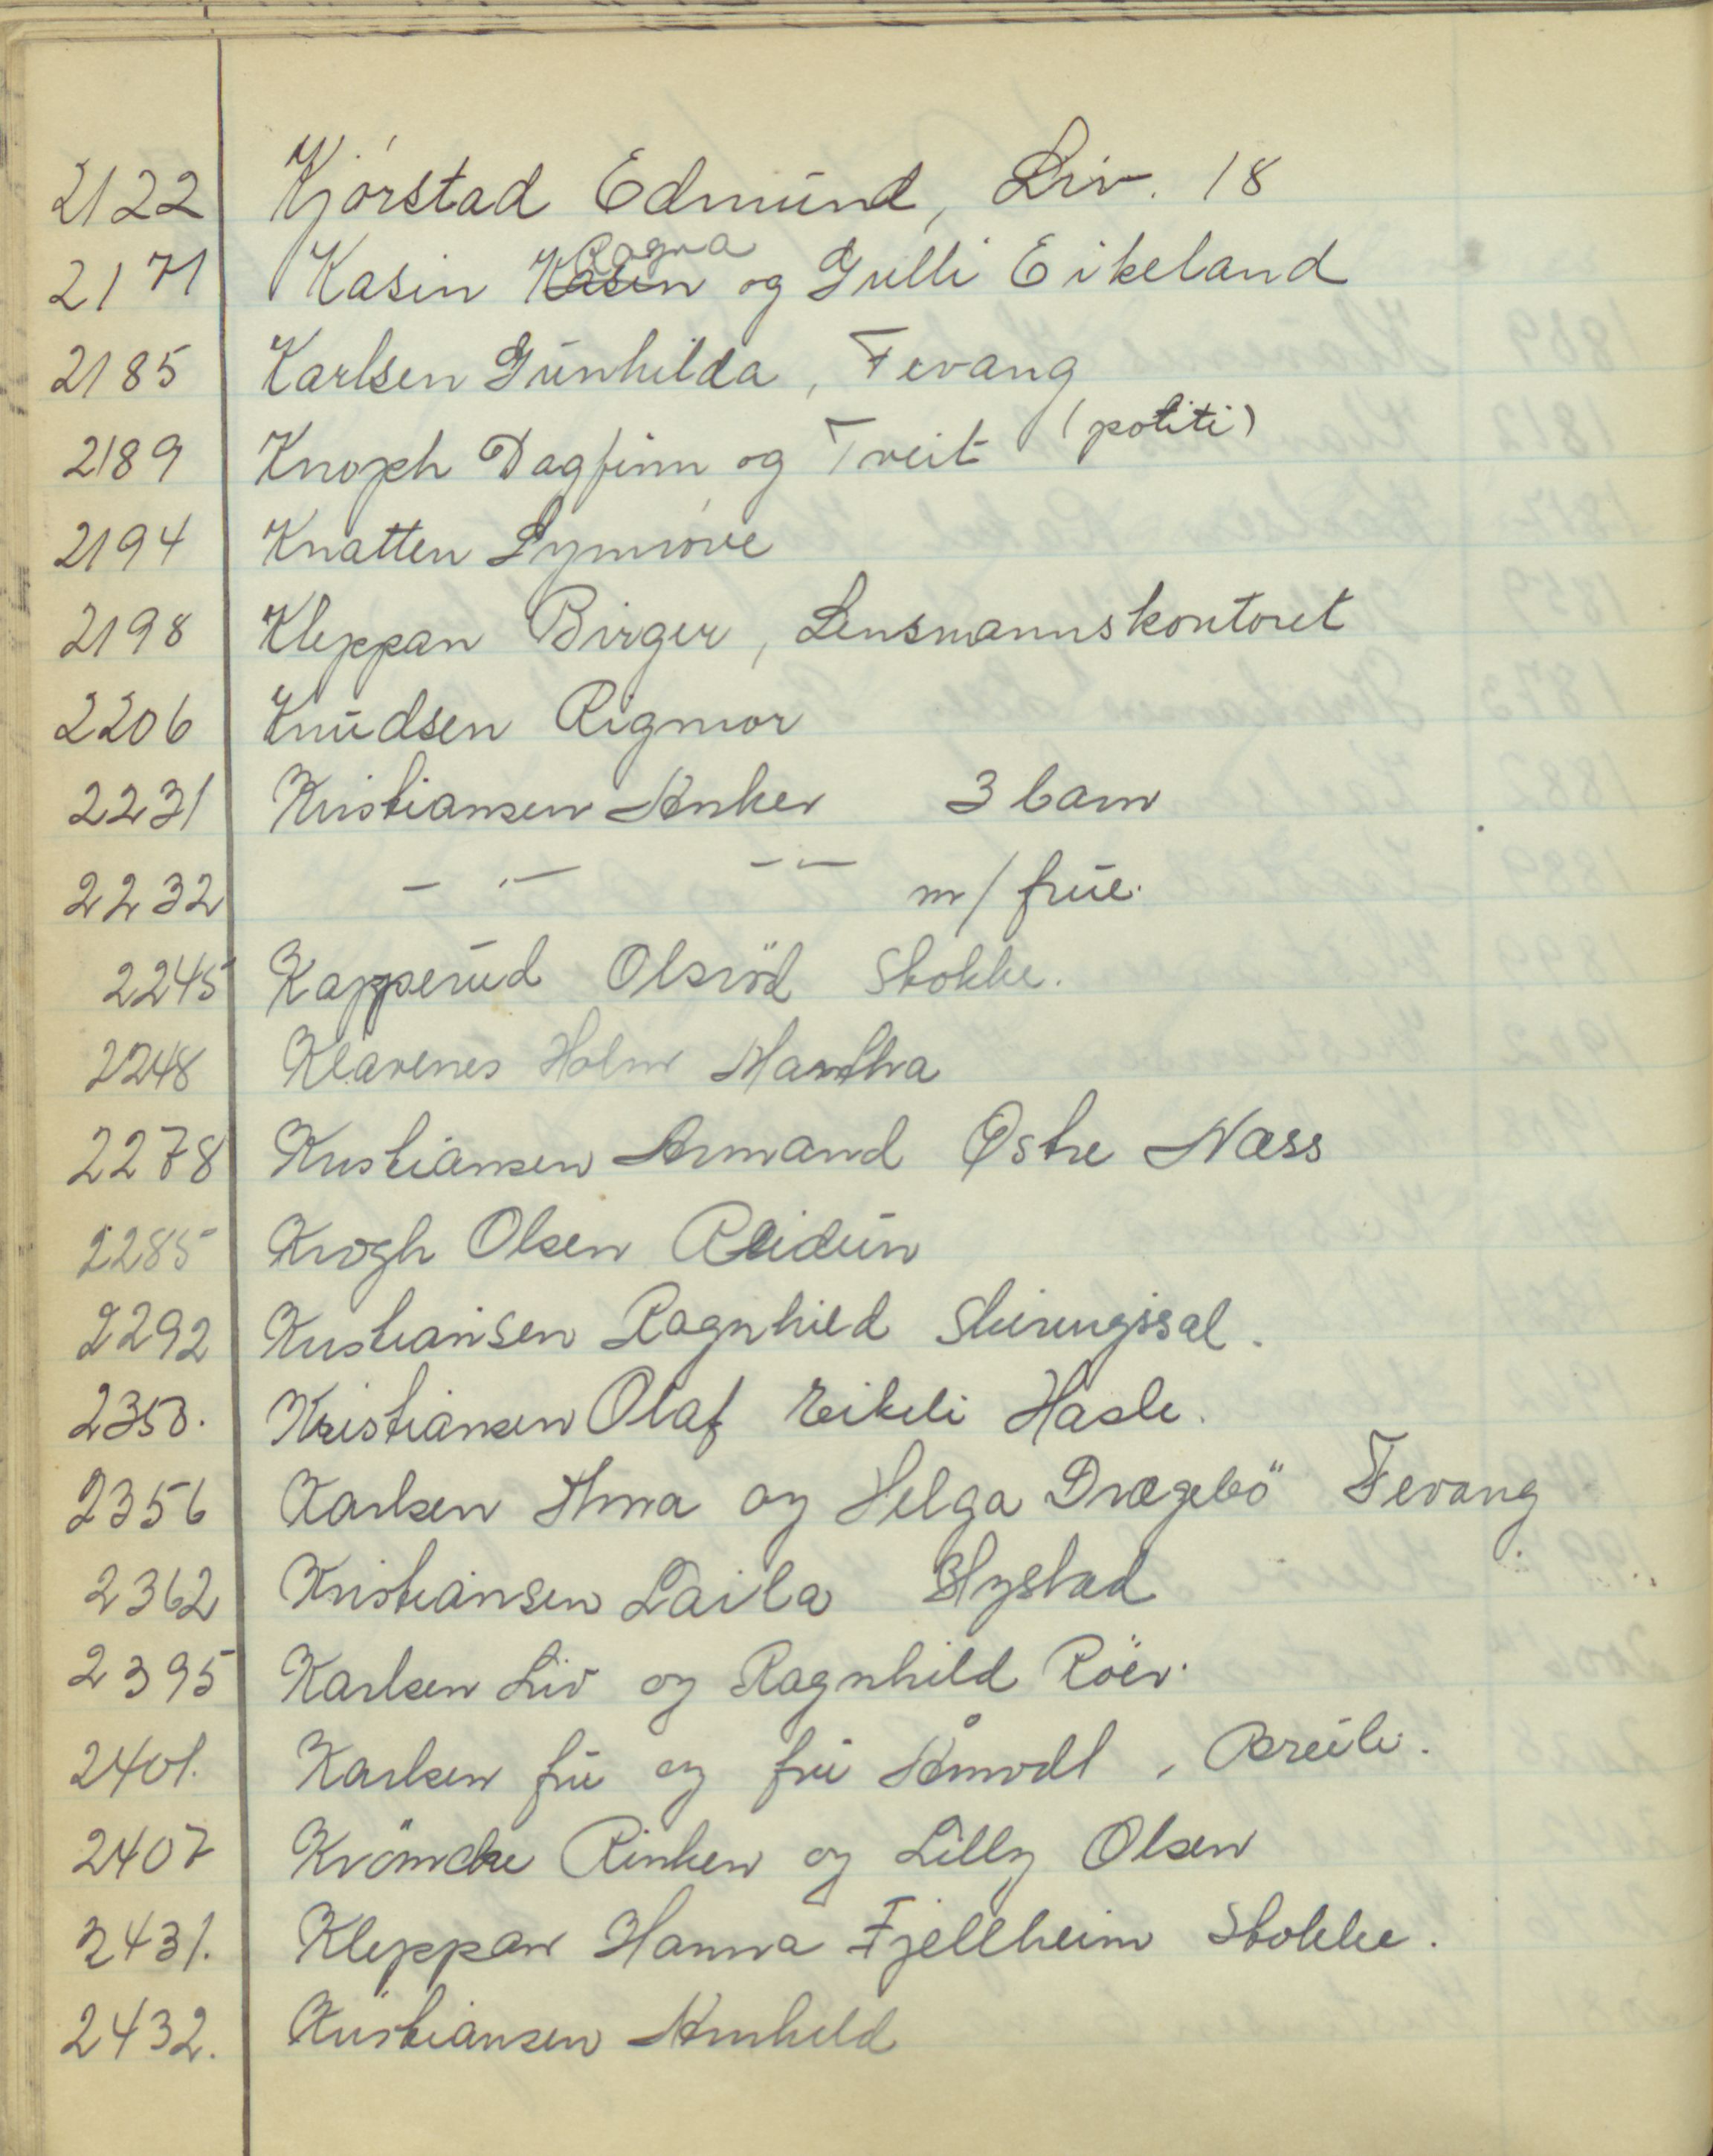 2122 Kjørstad Edmund, Liv. 18
2171 Kasin Kasin Ragna og Gulli Eikeland
2185 Karlsen Gunhilda, Fevang
2189 Knoph Dagfinn og Tveit (politi)
2194 Knatten Synnöve
2198 Kleppan Birger, Lensmannskontoret
2206 Knudsen Rigmor
2231 Kristiansen Anker 3 barn
2232 — " — — " — m/frue.
2245 Kapperud Olsröd Stokke.
2248 Klavenes Holm Martha
2278 Kristiansen Armand Østre Næss
2285 Krogh Olsen Reidun
2292 Kristiansen Ragnhild Skiringssal.
2350. Kristiansen Olaf Eikeli Hasle.
2356 Karlsen Anna og Helga Drægebö Fevang
2362 Kristiansen Laila Hystad
2395 Karlsen Liv og Ragnhild Röer.
2401. Karlsen fru og fru Åmodt,
2407 Krömcke Rinken og Lilly Olsen
2431. Kleppan Hanna Fjellheim Stokke.
2432. Kristiansen Arnhild